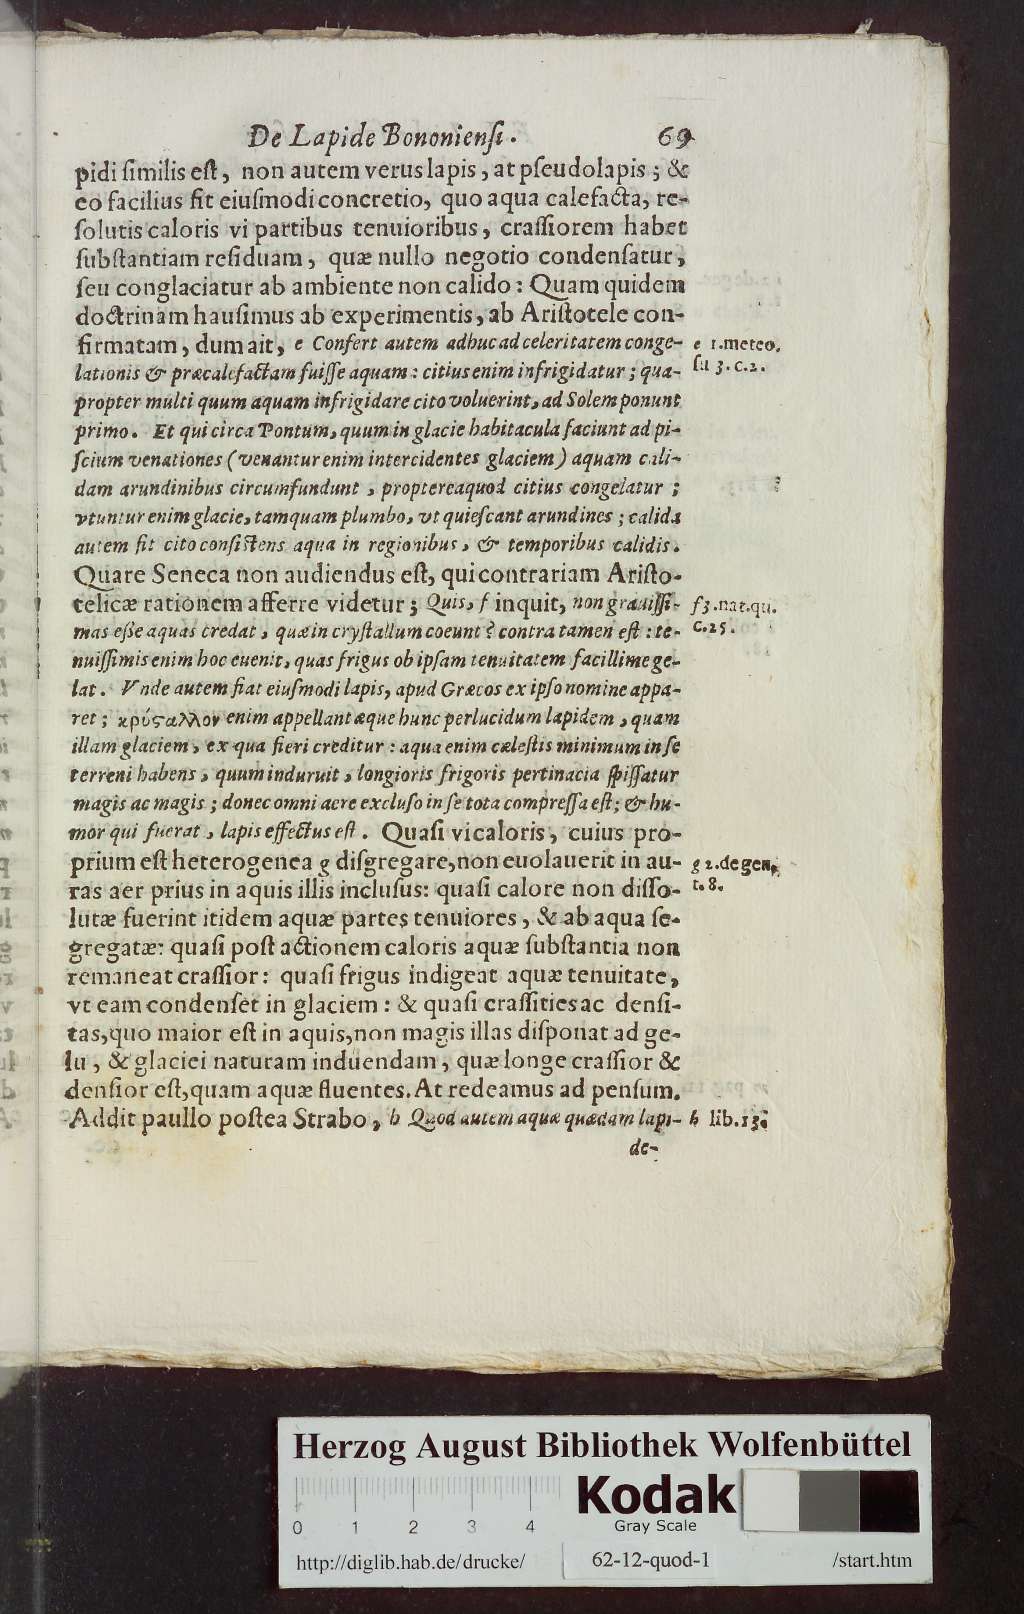 De Lapide Bononiensi. 69
pidi ſimilis eſt, non autem verus lapis, at pſeudolapis; &
eo facilius fit eiuſmodi concretio, quo aqua calefacta, re-
ſolutis caloris vi partibus tenuioribus, craſſiorem habet
ſubſtantiam reſiduam, quæ nullo negotio condenſatur,
ſeu conglaciatur ab ambiente non calido: Quam quidem
doctrinam hauſimus ab experimentis, ab Ariſtotele con-
firmatam, dum ait, e Confert autem adhuc ad celeritatem conge-
e 1.meteo.
lationis & præcalefactam fuiſſe aquam: citius enim infrigidatur; qua-
ſu 3. c.2.
propter multi quum aquam infrigidare cito voluerint, ad Solem ponunt
primo. Et qui circa Pontum, quum in glacie habitacula faciunt ad pi-
ſcium venationes (venantur enim intercidentes glaciem) aquam cali-
dam arundinibus circumfundunt, proptereaquod citius congelatur;
vtuntur enim glacie, tamquam plumbo, vt quieſcant arundines; calida
autem fit cito conſiſtens aqua in regionibus, & temporibus calidis.
Quare Seneca non audiendus eſt, qui contrariam Ariſto-
telicæ rationem afferre videtur; Quis, f inquit, non grauiſſi-
f 3.nat.qu.
mas eſſe aquas credat, quæ in cryſtallum coeunt? contra tamen eſt: te-
c.25.
nuiſſimis enim hoc euenit, quas frigus ob ipſam tenuitatem facillime ge-
lat. Vnde autem fiat eiuſmodi lapis, apud Græcos ex ipſo nomine appa-
ret; κρύϛαλλον enim appellant æque hunc perlucidum lapidem, quam
illam glaciem, ex qua fieri creditur: aqua enim cæleſtis minimum in ſe
terreni habens, quum induruit, longioris frigoris pertinacia ſpiſſatur
magis ac magis; donec omni aere excluſo in ſe tota compreſſa eſt; & hu-
mor qui fuerat, lapis effectus eſt. Quaſi vi caloris, cuius pro-
prium eſt heterogenea g diſgregare, non euolauerit in au-
g 2.de gen.
ras aer prius in aquis illis incluſus: quaſi calore non diſſo-
t.8.
lutæ fuerint itidem aquæ partes tenuiores, & ab aqua ſe-
gregatæ: quaſi poſt actionem caloris aquæ ſubſtantia non
remaneat craſſior: quaſi frigus indigeat aquæ tenuitate,
vt eam condenſet in glaciem: & quaſi craſſities ac denſi-
tas, quo maior eſt in aquis, non magis illas diſponat ad ge-
lu, & glaciei naturam induendam, quæ longe craſſior &
denſior eſt, quam aquæ fluentes. At redeamus ad penſum.
Addit paullo poſtea Strabo, h Quod autem aquæ quædam lapi-
h lib.13.
de-
Herzog August Bibliothek Wolfenbüttel
0 1 2 3 4
Kodak
Gray Scale
http://diglib.hab.de/drucke/ 62-12-quod-1 /start.htm